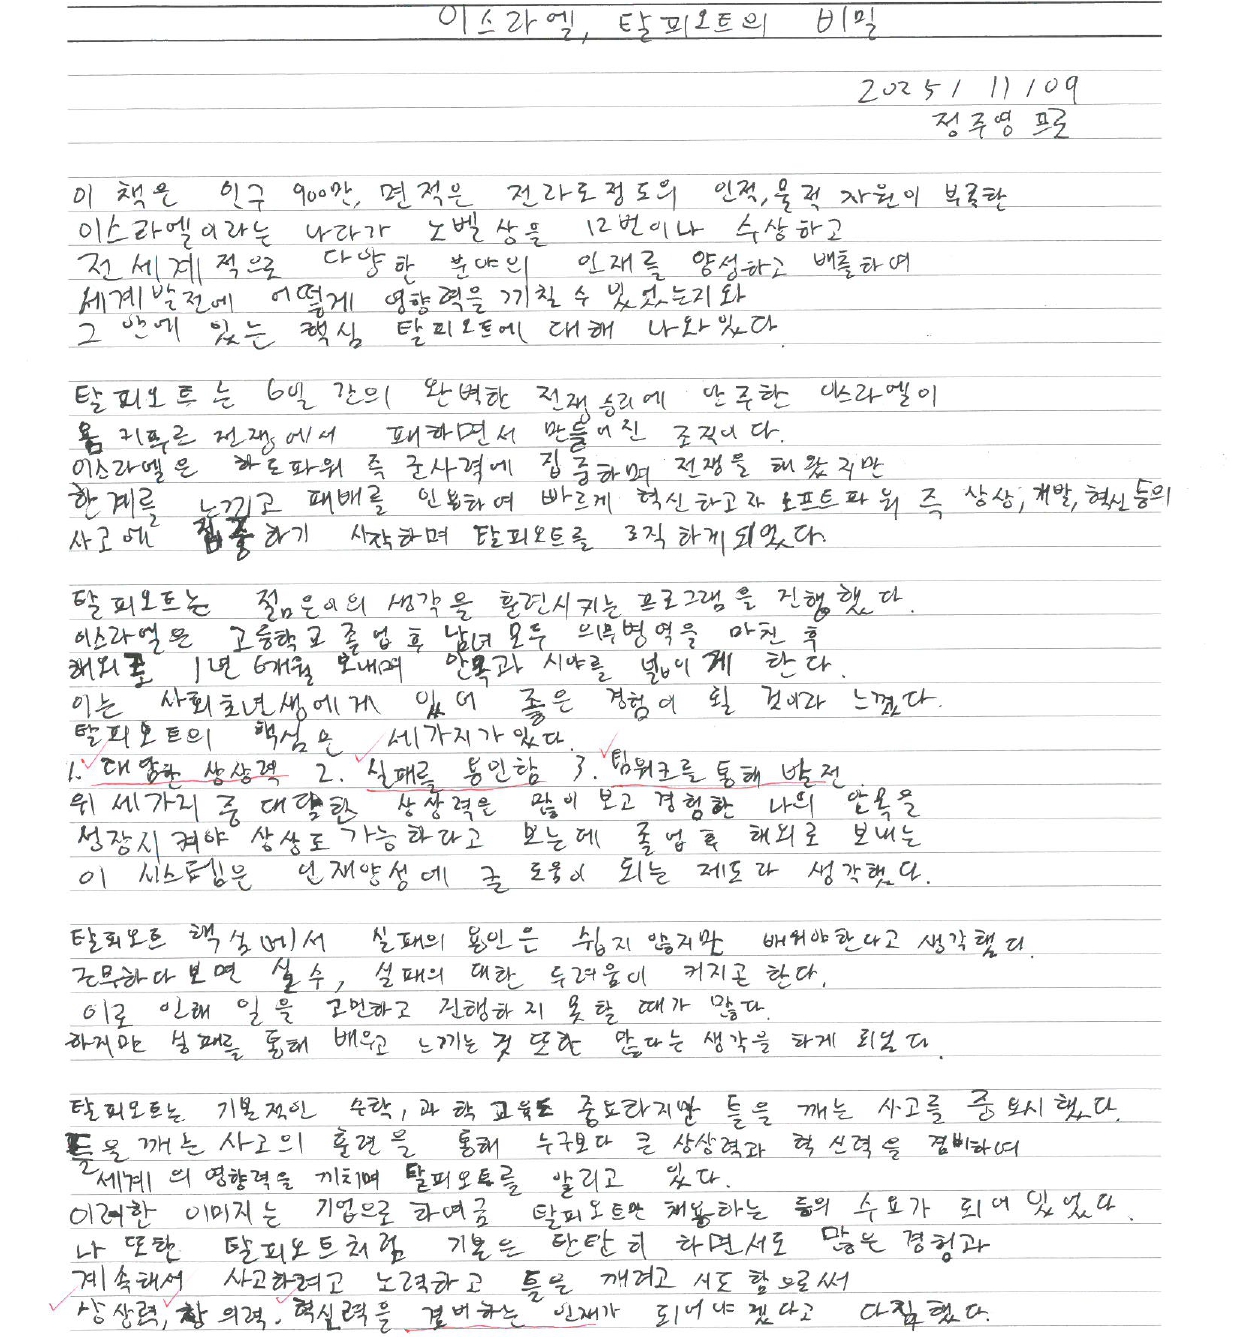 이스라엘, 탈피오트의 비밀
2025/11/09
정주영 프로
이 책은 인구 900만, 면적은 전라도정도의 인적,물적 자원이 부족한
이스라엘이라는 나라가 노벨상을 12번이나 수상하고
전세계적으로 다양한 분야의 인재를 양성하고 배출하여
세계발전에 어떻게 영향력을 끼칠 수 있었는지와
그 안에 있는 핵심 탈피오트에 대해 나와있다.
탈피오트는 6일 간의 완벽한 전쟁승리에 안주한 이스라엘이
욤 키푸르 전쟁에서 패하면서 만들어진 조직이다.
이스라엘은 하드파워 즉 군사력에 집중하며 전쟁을 해왔지만
한계를 느끼고 패배를 인정하여 빠르게 혁신하고자 소프트파워 즉 상상, 개발, 혁신 등의
사고에 집중하기 시작하며 탈피오트를 조직하게 되었다.
탈피오트는 젊은이의 생각을 훈련시키는 프로그램을 진행했다.
이스라엘은 고등학교 졸업 후 남녀 모두 의무병역을 마친 후
해외로 1년 6개월 보내며 안목과 시야를 넓이게 한다.
이는 사회초년생에게 있어 좋은 경험이 될 것이라 느꼈다.
탈피오트의 핵심은 세가지가 있다.
1. 대담한 상상력 2. 실패를 용인함 3. 팀워크를 통해 발전
위 세가지 중 대담한 상상력은 많이 보고 경험한 나의 안목을
성장시켜야 상상도 가능하다고 보는데 졸업 후 해외로 보내는
이 시스템은 인재양성에 큰 도움이 되는 제도라 생각했다.
탈피오트 핵심에서 실패의 용인은 쉽지 않지만 배워야한다고 생각했다.
근무하다보면 실수, 실패의 대한 두려움이 커지곤 한다.
이로 인해 일을 고민하고 진행하지 못할 때가 많다.
하지만 실패를 통해 배우고 느끼는 것 또한 많다는 생각을 하게 되었다.
탈피오트는 기본적인 수학, 과학 교육도 중요하지만 틀을 깨는 사고를 중요시했다.
틀을 깨는 사고의 훈련을 통해 누구보다 큰 상상력과 혁신력을 겸비하여
세계의 영향력을 끼치며 탈피오트를 알리고 있다.
이러한 이미지는 기업으로 하여금 탈피오트만 채용하는 등의 수요가 되어 있었다.
나 또한 탈피오트처럼 기본은 탄탄히 하면서도 많은 경험과
계속해서 사고하려고 노력하고 틀을 깨려고 시도함으로써
상상력, 창의력, 혁신력을 겸비하는 인재가 되어야겠다고 다짐했다.